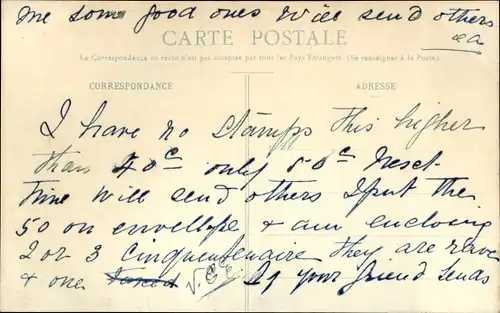 me some good ones Will send others
&a
CARTE POSTALE
La Correspondance au recto n'est pas acceptée par tous les Pays Étrangers. (Se renseigner à la Poste.)
CORRESPONDANCE
ADRESSE
I have no Stamps this higher
than 40c only 80c Next
time will send others I put the
50 on envellope & am enclosing
2 or 3 Cinquentenaire they are rare
& one If your friend sends